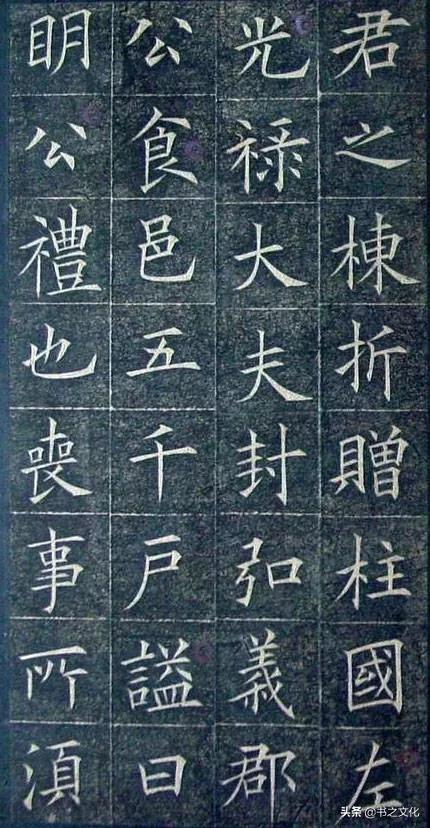 君之棟折贈柱國左
光祿大夫封弘義郡
公食邑五千戶謚曰
明公禮也喪事所須
头条 @书之文化